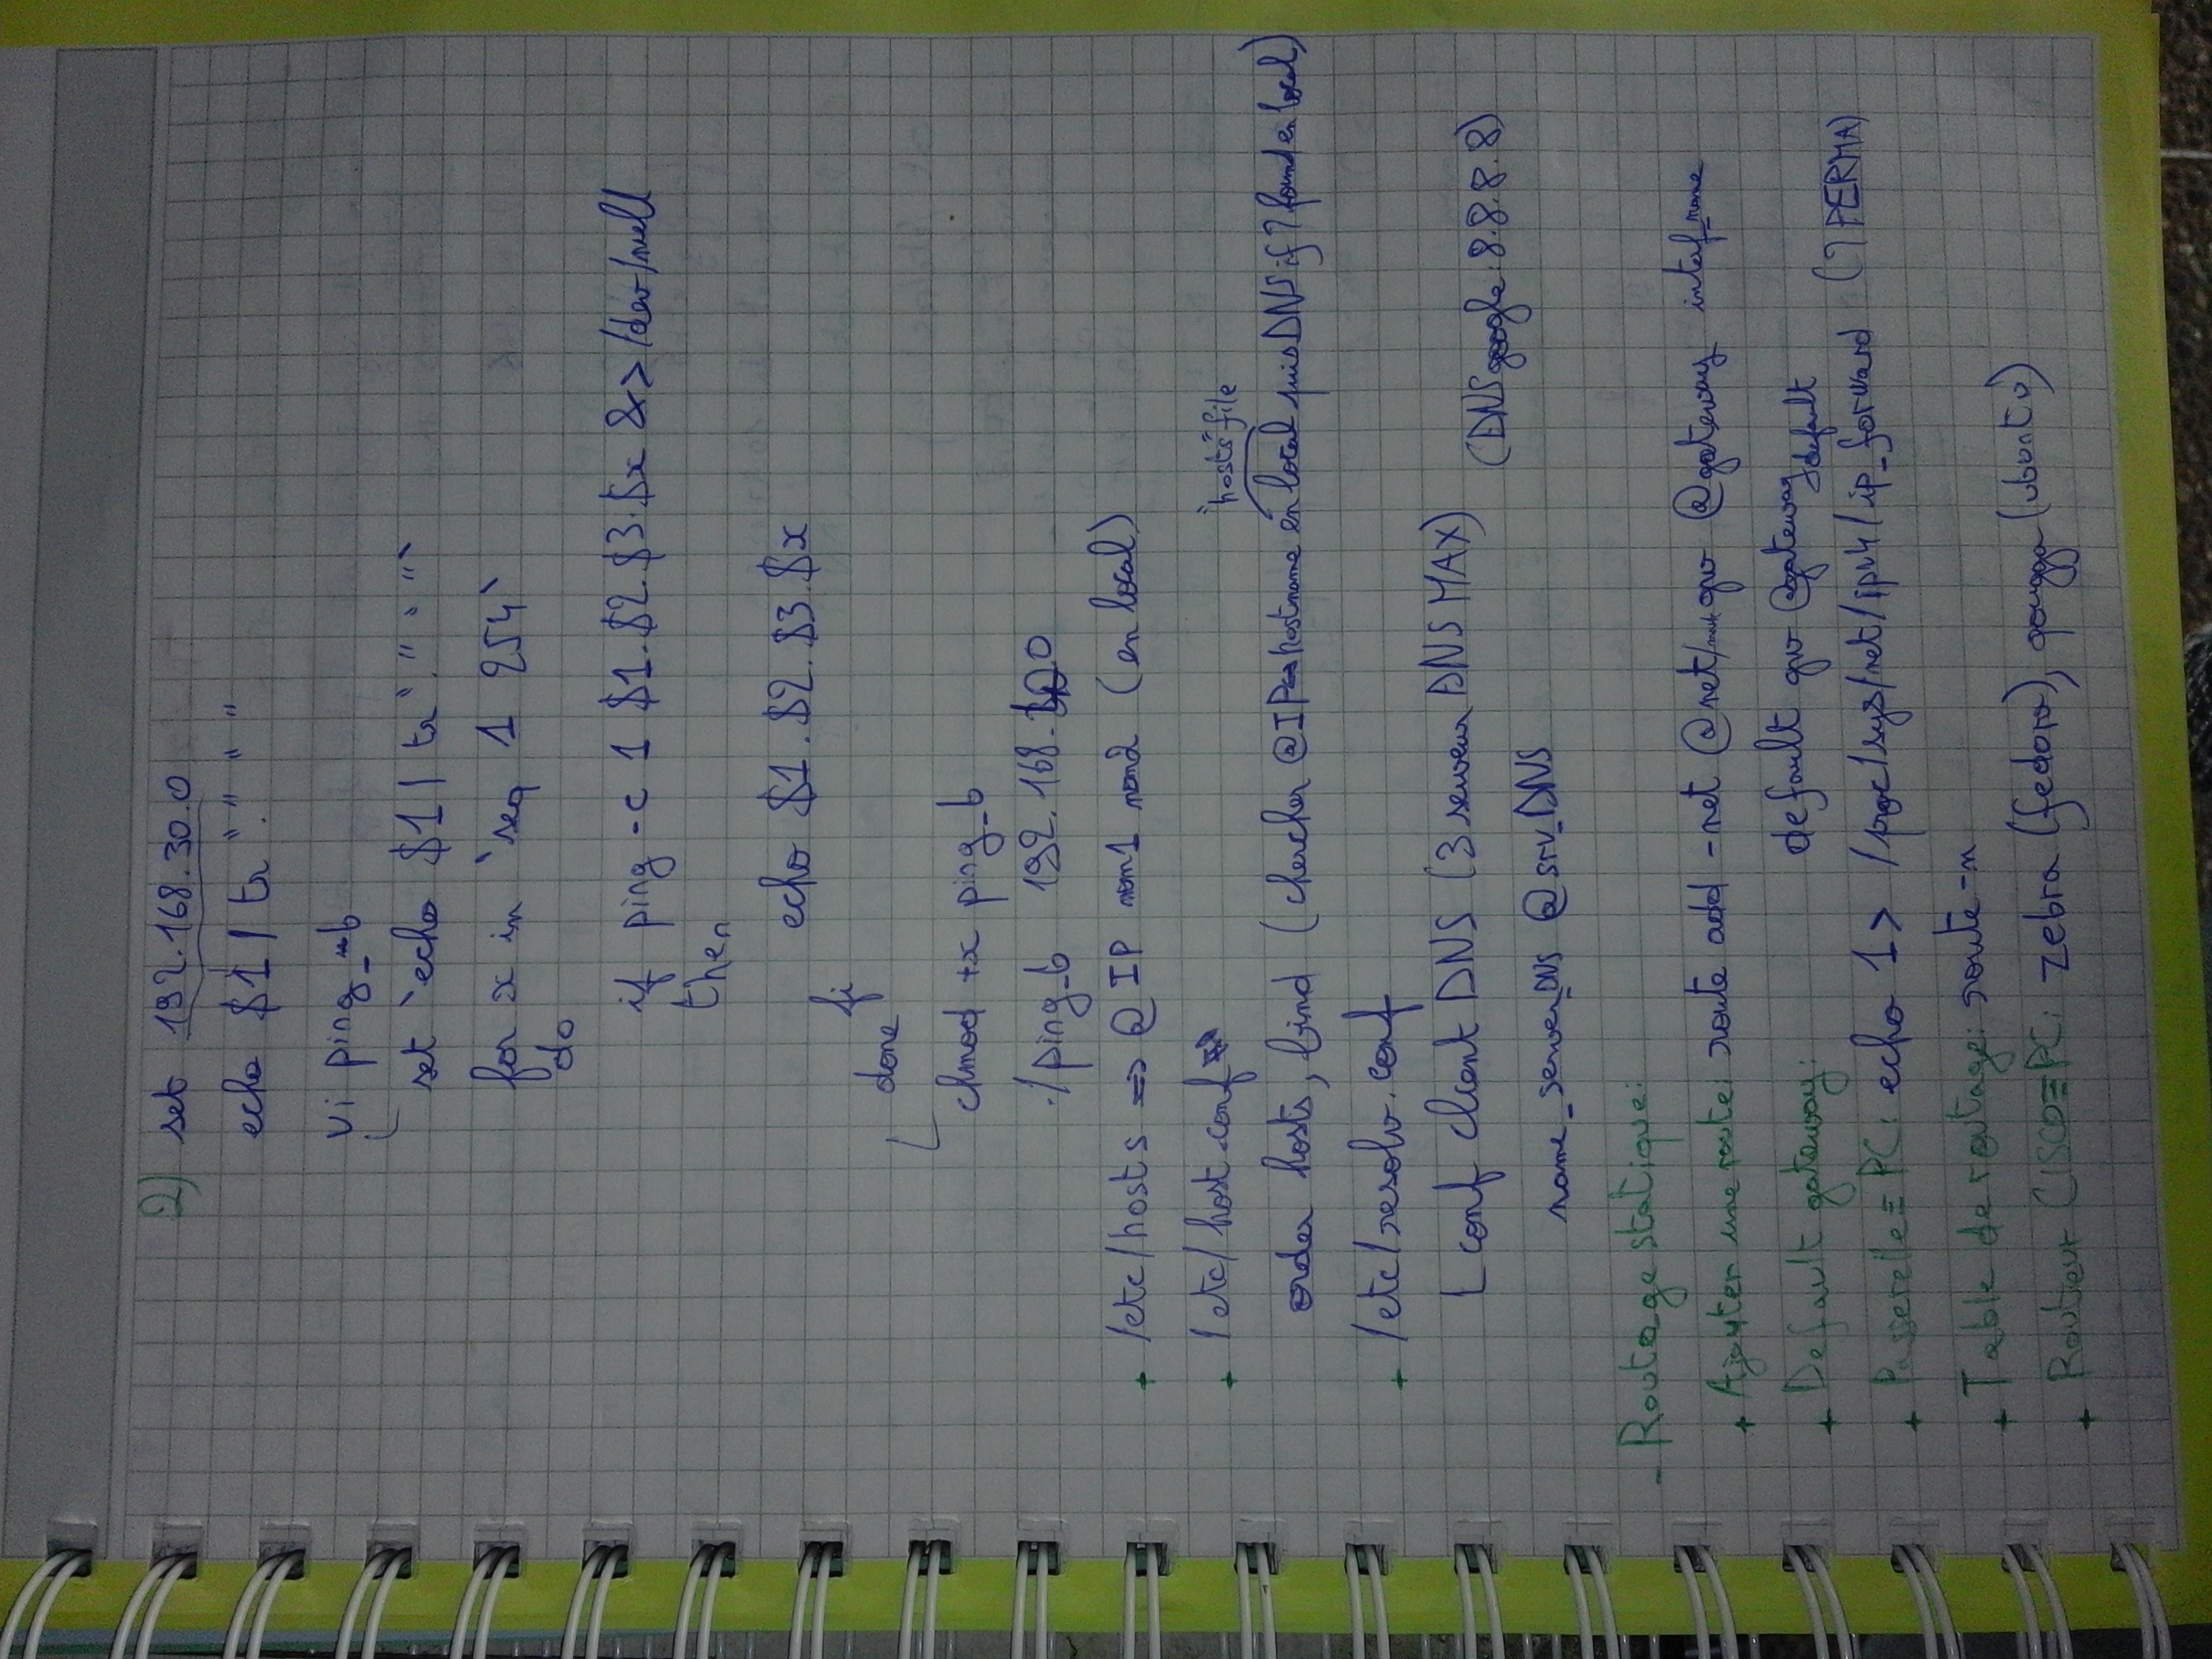 2) set 192.168.30.0
echo $1 | tr "." " "
vi ping_b
set `echo $1 | tr "." " "`
for x in `seq 1 254`
do
if ping -c 1 $1.$2.$3.$x &> /dev/null
then
echo $1.$2.$3.$x
fi
done
chmod +x ping_b
./ping_b 192.168.
+ /etc/hosts => @IP nom1 nom2 (en local)
+ /etc/host.conf
"hosts" file
order hosts, bind (chercher @IP<=>hostname en local puis DNS if ? found en local)
+ /etc/resolv.conf
conf client DNS (3 serveur DNS MAX)
(DNS google: 8.8.8.8)
name_server_DNS @srv_DNS
- Routage statique:
+ Ajouter une route: route add -net @net/mask gw @gateway interf_name
+ Default gateway: default gw @gateway_default
+ Passerelle ≡ PC: echo 1 > /proc/sys/net/ipv4/ip_forward (? PERMA)
+ Table de routage: route -n
+ Routeur CISCO ≡ PC: zebra (fedora), qougga (ubuntu)